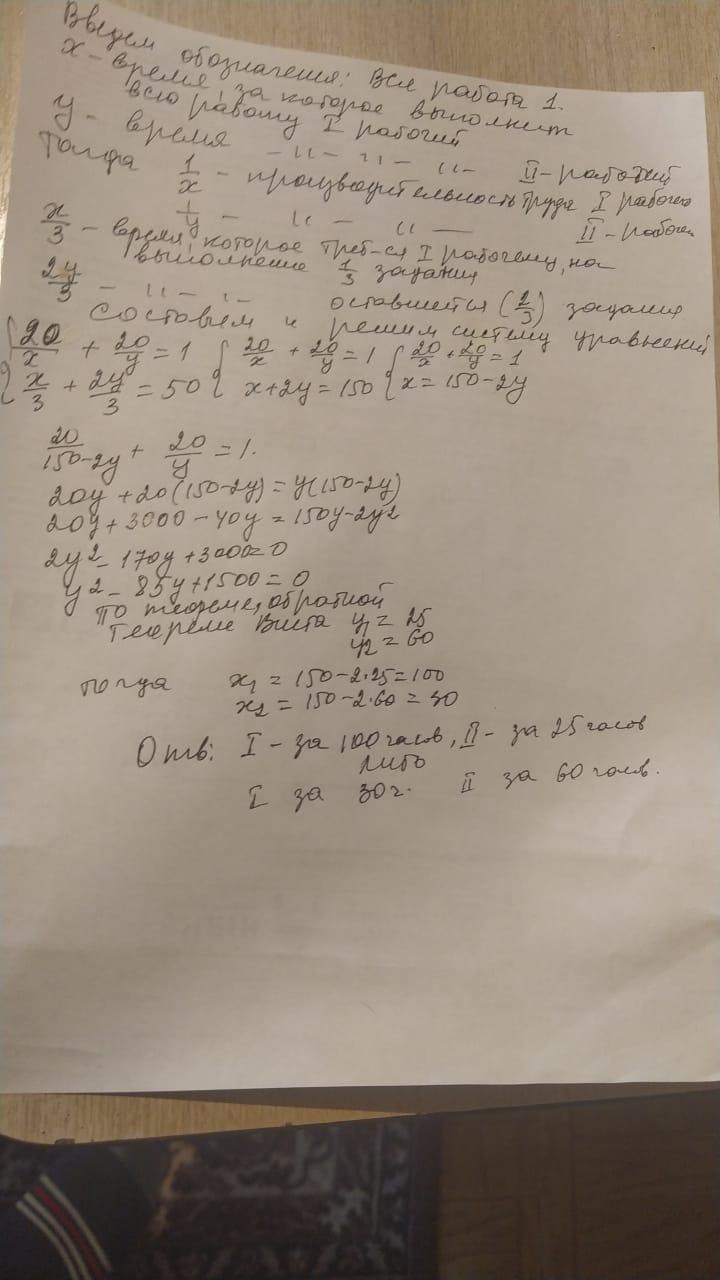 Введем обозначения: Вся работа 1.
x - время, за которое выполнит
всю работу I рабочий
y - время -"- -"- -"- II - рабочий
Тогда 1/x - производительность труда I рабочего
1/y - -"- -"- II - рабочего
x/3 - время, которое треб-ся I рабочему, на
выполнение 1/3 задания
2y/3 -"- -"- оставшейся (2/3) задания
Составим и решим систему уравнений
{20/x + 20/y = 1 {20/x + 20/y = 1 {20/x + 20/y = 1
{x/3 + 2y/3 = 50 {x + 2y = 150 {x = 150 - 2y
20/(150-2y) + 20/y = 1.
20y + 20(150-2y) = y(150-2y)
20y + 3000 - 40y = 150y - 2y²
2y² - 170y + 3000 = 0
y² - 85y + 1500 = 0
По теореме, обратной
Теореме Виета y₁ = 25
y₂ = 60
тогда x₁ = 150 - 2·25 = 100
x₂ = 150 - 2·60 = 30
Отв: I - за 100 часов, II - за 25 часов
либо
I за 30 ч. II за 60 часов.